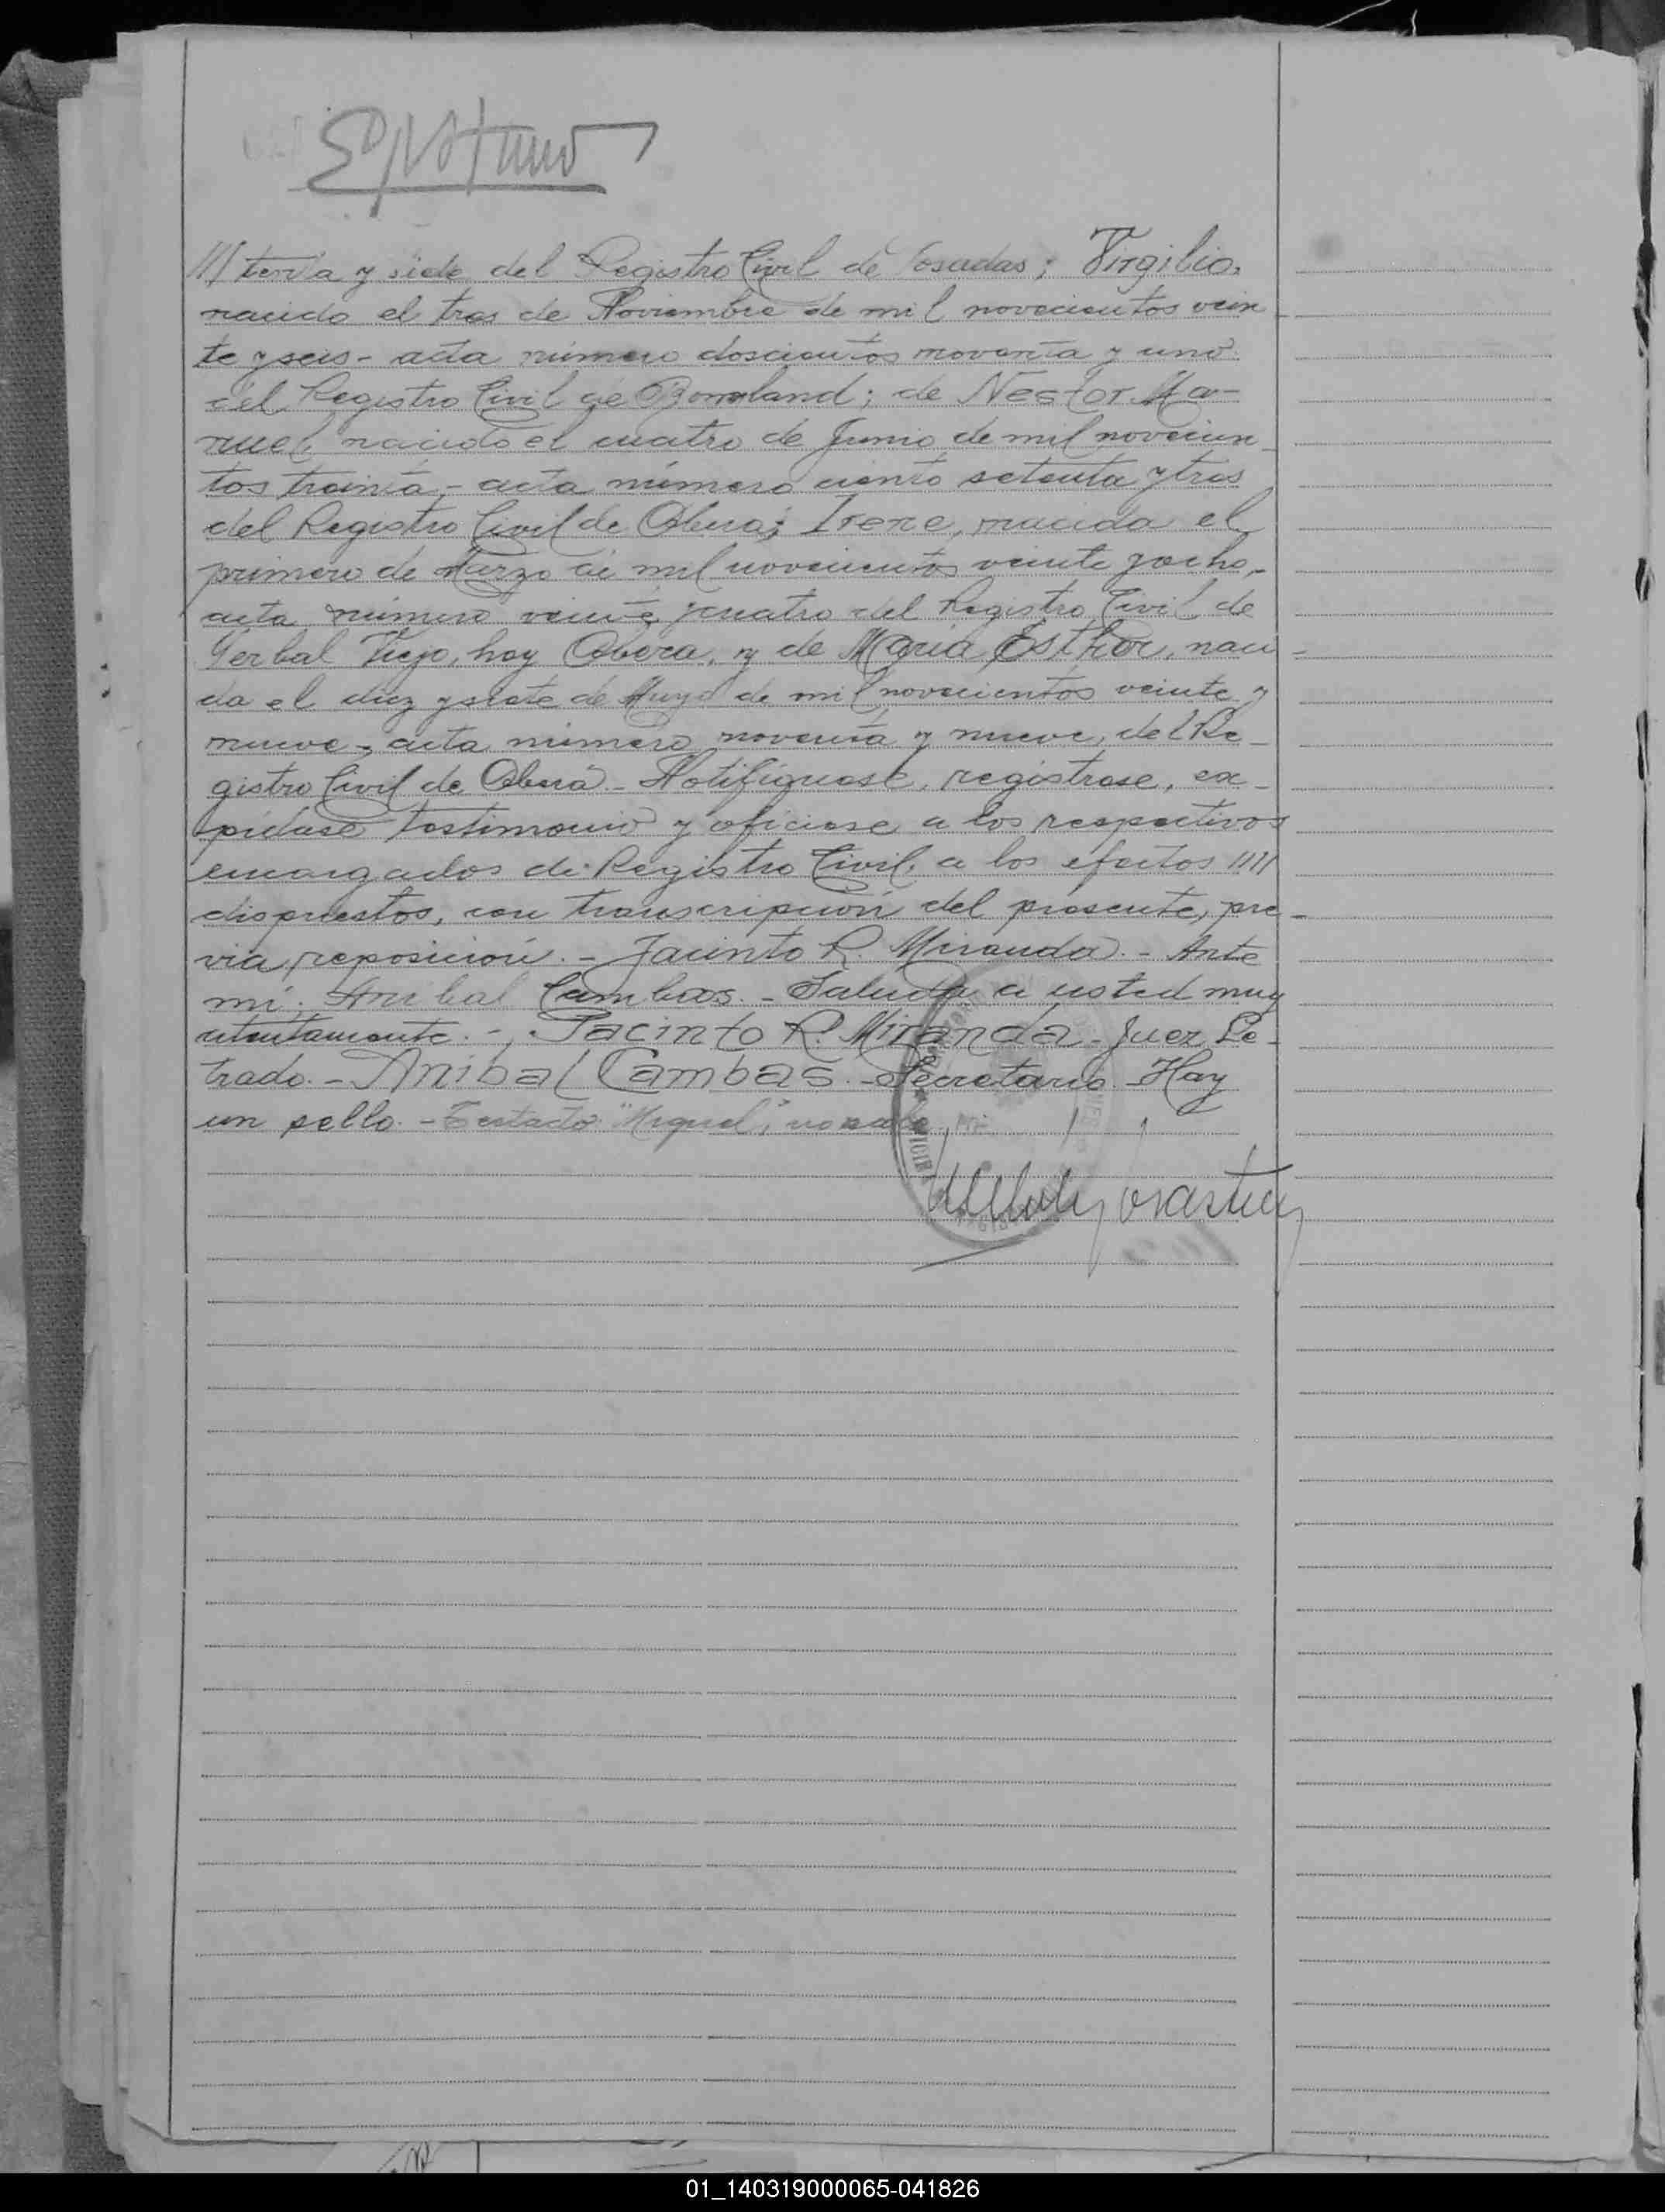 ///tenta y siete del Registro Civil de Posadas; Virgilio,
nacido el tres de Noviembre de mil novecientos vein
te y seis - acta número doscientos noventa y uno
del Registro Civil de Bompland; de Nestor Ma-
nuel, nacido el cuatro de Junio de mil novecien
tos treinta, - acta número ciento setenta y tres
del Registro Civil de Oberá; Irene, nacida el
primero de Marzo de mil novecientos veinte y ocho,-
acta número veinte y cuatro del Registro Civil de
Yerbal Viejo, hoy Oberá, y de María Esther, naci-
da el diez y siete de Mayo de mil novecientos veinte y
nueve - acta número noventa y nueve, del Re-
gistro Civil de Oberá.- Notifíquese, regístrese, ex-
pídase testimonio y ofíciese a los respectivos
encargados de Registro Civil, a los efectos ////
dispuestos, con transcripción del presente, pre-
via reposición. - Jacinto R. Miranda. - Ante
mí: Anibal Cambas. - Saluda a usted muy
atentamente. - Jacinto R. Miranda - Juez Le-
trado. - Anibal Cambas. - Secretario. Hay
un sello. - Testado "Miguel", no vale.
01_140319000065-041826